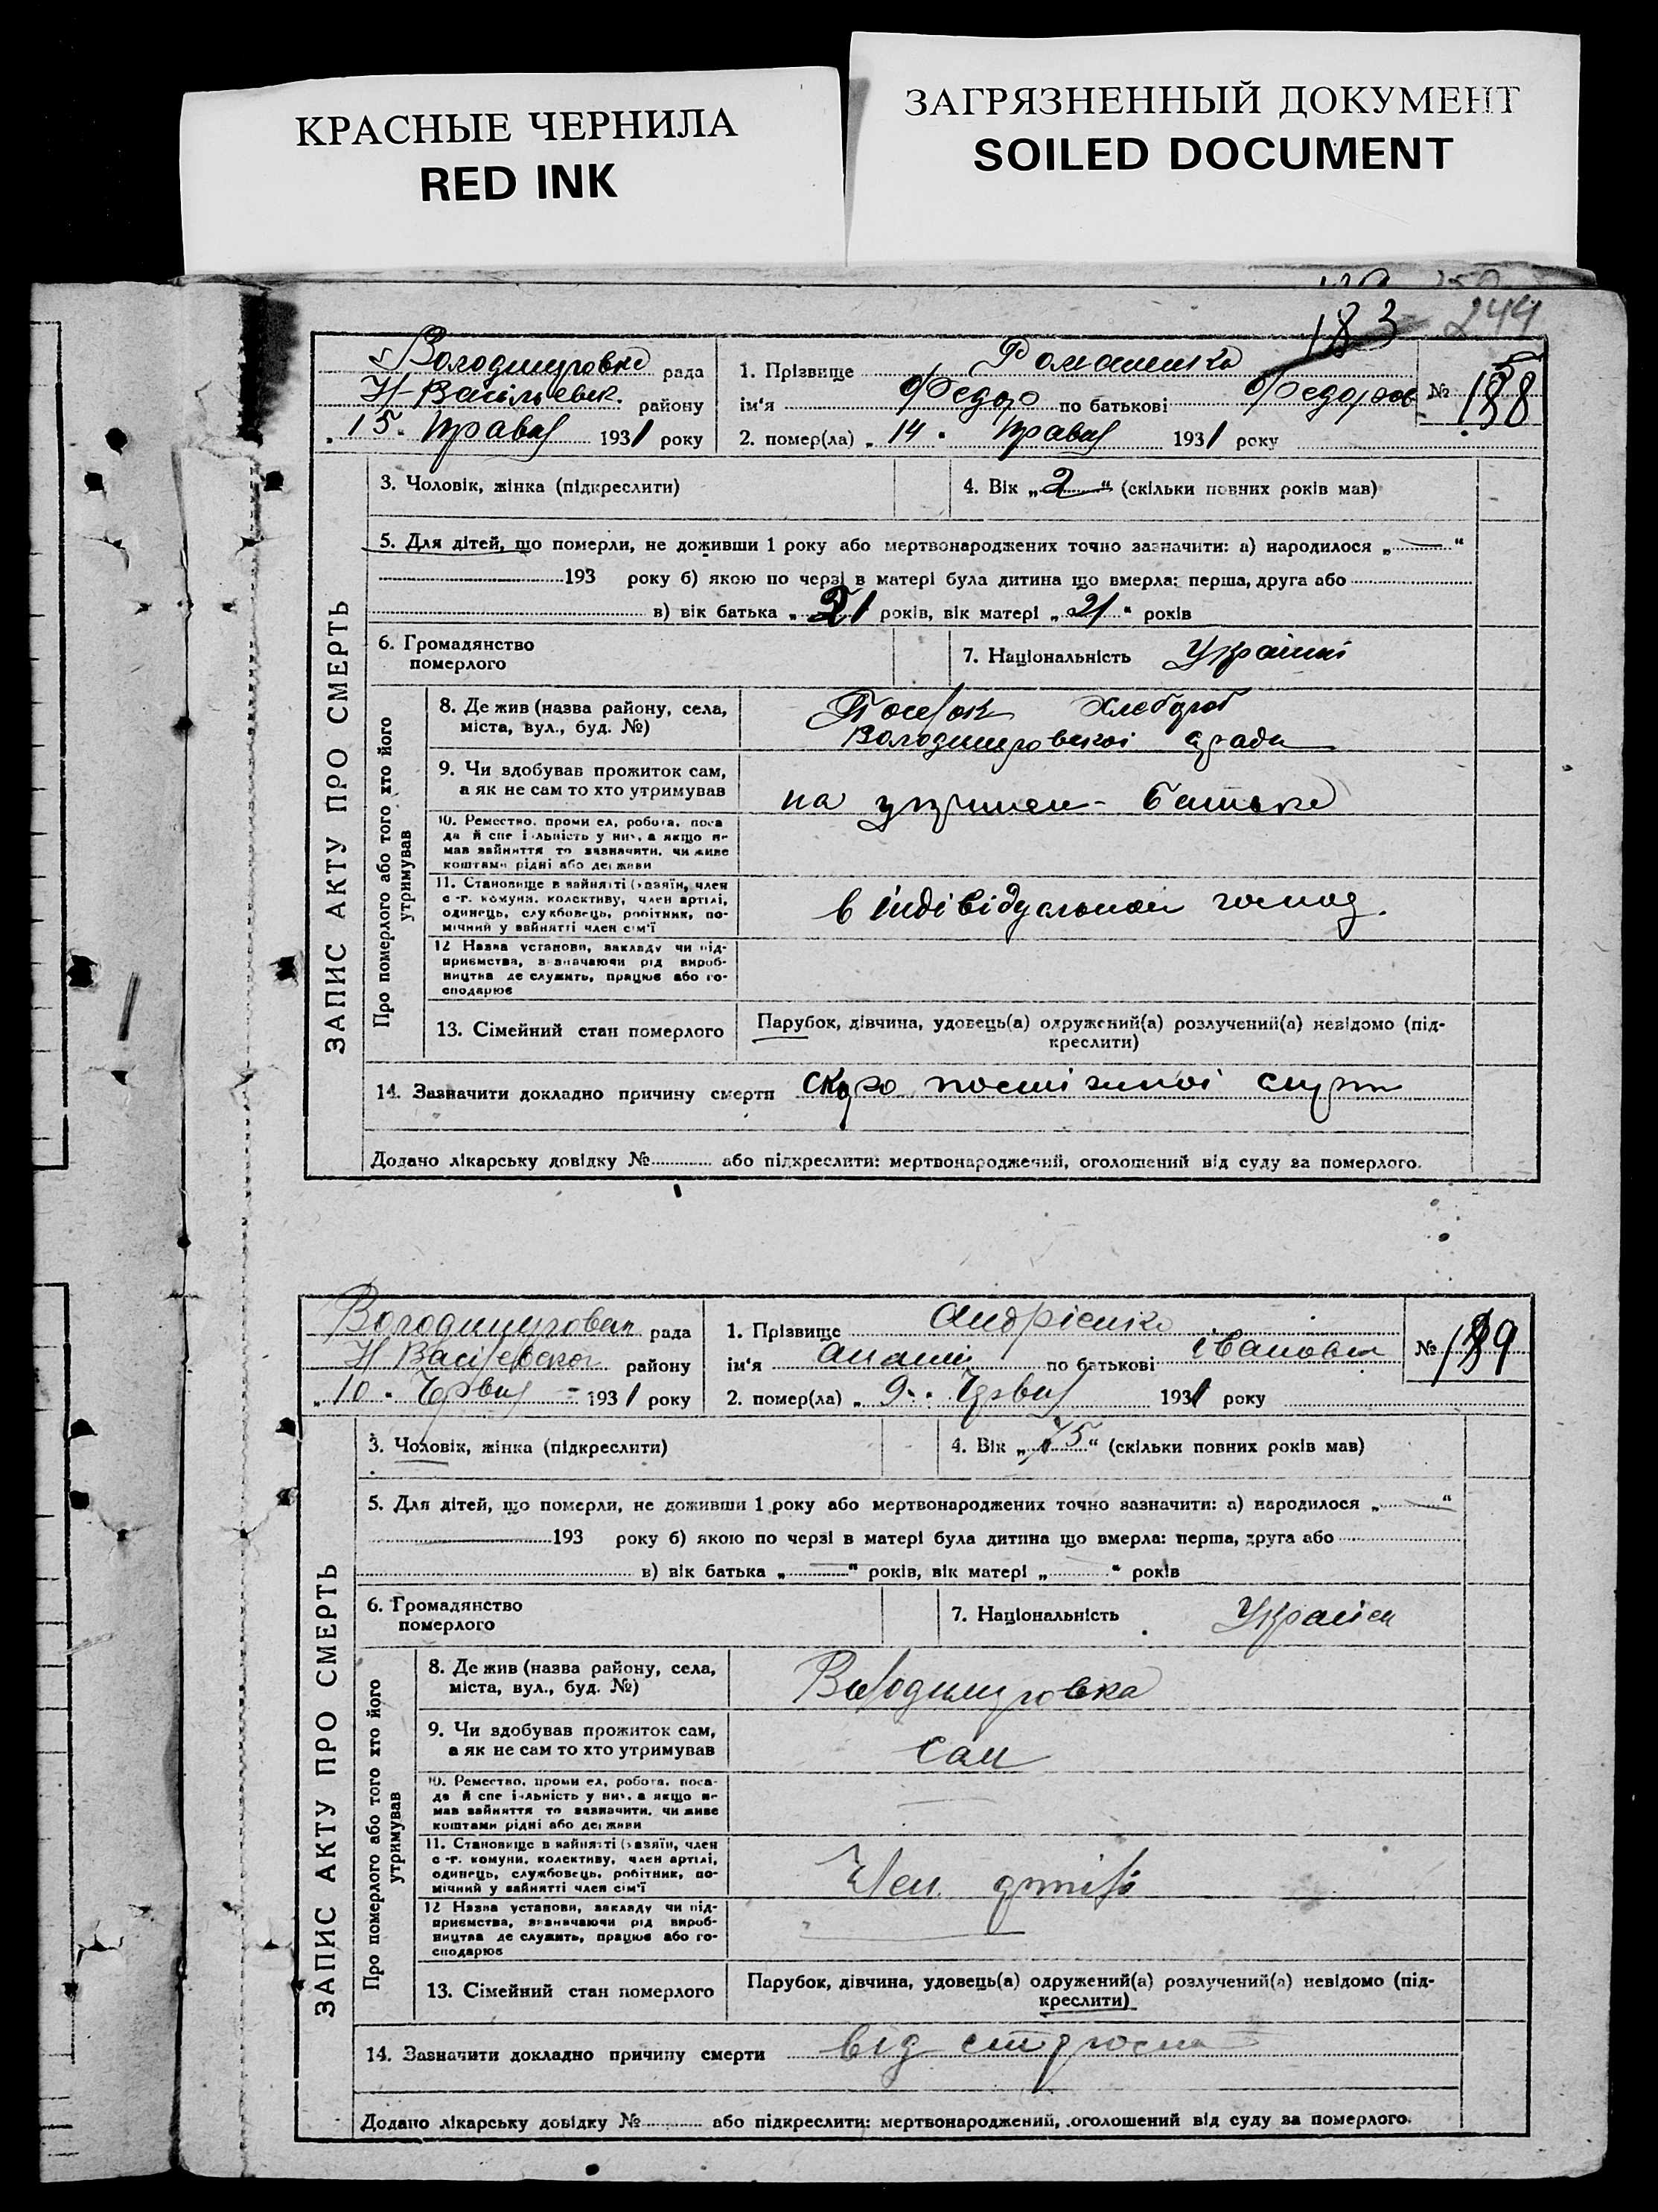 КРАСНЫЕ ЧЕРНИЛА
RED INK
ЗАГРЯЗНЕННЫЙ ДОКУМЕНТ
SOILED DOCUMENT
183 244
рада
Н-Васільевск. району
„15" Травня 1931 року
1. Прізвище Романенко
ім'я Федор по батькові Федоров
№ 188
2. помер(ла) „14" Травня 1931 року
ЗАПИС АКТУ ПРО СМЕРТЬ
3. Чоловік, жінка (підкреслити)
4. Вік „2" (скільки повних років мав)
5. Для дітей, що померли, не доживши 1 року або мертвонароджених точно зазначити: а) народилося „ "
193 року б) якою по черзі в матері була дитина що вмерла: перша, друга або
в) вік батька „21 років, вік матері „21" років
6. Громадянство
померлого
7. Національність
Про померлого або того хто його
утримував
8. Де жив (назва району, села,
міста, вул., буд. №)
Хлебороб
9. Чи здобував прожиток сам,
а як не сам то хто утримував
на батька
10. Ремество, проми ел, робота, поса
да й спе і льність у них, а якщо не
мав зайняття то зазначити, чи живе
коштами рідні або держави
11. Становище в зайнятті (хазяїн, член
с-г. комуни, колективу, член артілі,
одинець, службовець, робітник, по-
мічний у зайнятті член сім'ї
в індівідуальном господ.
12 Назва установи, закладу чи під-
приємства, зазначаючи рід вироб-
ництва де служить, працює або го-
сподарює
13. Сімейний стан померлого
Парубок, дівчина, удовець(а) одружений(а) розлучений(а) невідомо (під-
креслити)
14. Зазначити докладно причину смерти скоро
Додано лікарську довідку № або підкреслити: мертвонароджений, оголошений від суду за померлого.
рада
району
„10" Червня 1931 року
1. Прізвище Андрієнко
ім'я по батькові Іванович
№ 189
2. помер(ла) „9" Червня 1931 року
ЗАПИС АКТУ ПРО СМЕРТЬ
3. Чоловік, жінка (підкреслити)
4. Вік „75" (скільки повних років мав)
5. Для дітей, що померли, не доживши 1 року або мертвонароджених точно зазначити: а) народилося „ "
193 року б) якою по черзі в матері була дитина що вмерла: перша, друга або
в) вік батька „ " років, вік матері „ " років
6. Громадянство
померлого
7. Національність
Про померлого або того хто його
утримував
8. Де жив (назва району, села,
міста, вул., буд. №)
Володимировка
9. Чи здобував прожиток сам,
а як не сам то хто утримував
сам
10. Ремество, проми ел, робота, поса-
да й спе і льність у них, а якщо не
мав зайняття то зазначити, чи живе
коштами рідні або держави
11. Становище в зайнятті (хазяїн, член
с-г. комуни, колективу, член артілі,
одинець, службовець, робітник, по-
мічний у зайнятті член сім'ї
Член артілі
12 Назва установи, закладу чи під-
приємства, зазначаючи рід вироб-
ництва де служить, працює або го-
сподарює
13. Сімейний стан померлого
Парубок, дівчина, удовець(а) одружений(а) розлучений(а) невідомо (під-
креслити)
14. Зазначити докладно причину смерти від
Додано лікарську довідку № або підкреслити: мертвонароджений, оголошений від суду за померлого.